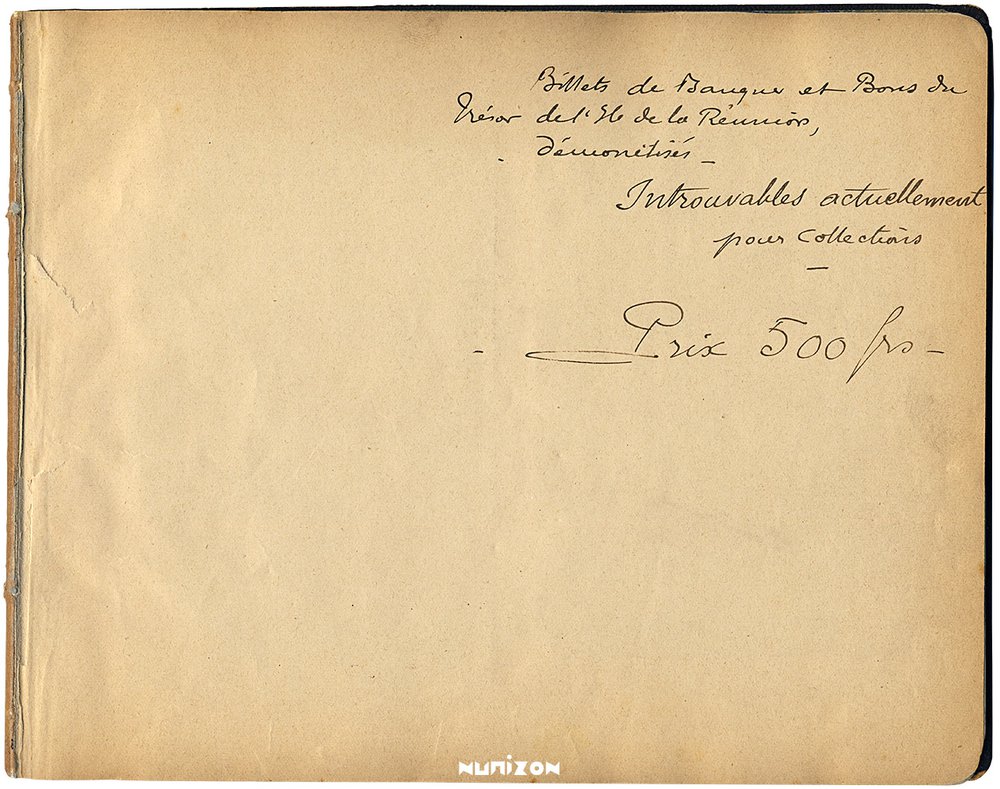 Billets de Banque et Bons du
Trésor de l'Ile de la Réunion,
démonétisés _
Introuvables actuellement
pour collections
—
- Prix 500 frs -
NUMIZON